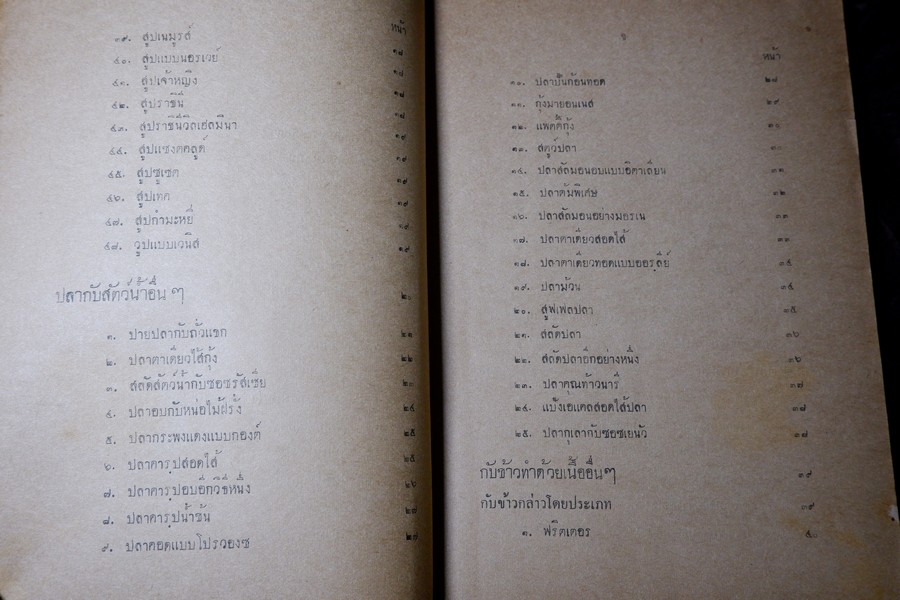 หน้า
๓๙. สูปเนมูรส์ ๑๘
๔๐. สูปแบบนอรเวย์ ๑๘
๔๑. สูปเจ้าหญิง ๑๘
๔๒. สูปราชินี ๑๘
๔๓. สูปราชินีวิลเฮลมีนา ๑๙
๔๔. สูปแซงคลูด์ ๑๙
๔๕. สูปซูเซต ๑๙
๔๖. สูปเทค ๑๙
๔๗. สูปกำมะหยี่ ๑๙
๔๘. วูปแบบเวนิส ๑๙
ปลากับสัตว์น้ำอื่น ๆ ๒๐
๑. ปายปลากับถั่วแขก ๒๒
๒. ปลาตาเดียวไส้กุ้ง ๒๒
๓. สลัดสัตว์น้ำกับซอซรัสเซีย ๒๓
๔. ปลาอบกับหน่อไม้ฝรั่ง ๒๔
๕. ปลากระพงแดงแบบกองต์ ๒๕
๖. ปลาคารูปสอดไส้ ๒๕
๗. ปลาคารูปอบอีกวิธีหนึ่ง ๒๖
๘. ปลาคารูปน้ำข้น ๒๗
๙. ปลาคอดแบบโปรวองซ ๒๗
หน้า
๑๐. ปลาปั้นก้อนทอด ๒๘
๑๑. กุ้งมายอนเนส ๒๙
๑๒. แพตตี้กุ้ง
๑๓. สตูว์ปลา
๑๔. ปลาสัลมอนอบแบบอิตาเลียน ๓๑
๑๕. ปลาต้มพิเศษ ๓๒
๑๖. ปลาสัลมอนอย่างมอรเน ๓๓
๑๗. ปลาตาเดียวสอดไส้ ๓๓
๑๘. ปลาตาเดียวทอดแบบออรลีย์ ๓๔
๑๙. ปลาม้วน ๓๔
๒๐. สูฟเฟลปลา ๓๕
๒๑. สลัดปลา ๓๖
๒๒. สลัดปลาอีกอย่างหนึ่ง ๓๖
๒๓. ปลาคุณท้าวนารี ๓๗
๒๔. แป้งเอแคลสอดไส้ปลา ๓๘
๒๕. ปลากุเลากับซอซเยนัว ๓๗
กับข้าวทำด้วยเนื้ออื่นๆ ๓๙
กับข้าวกล่าวโดยประเภท ๓๙
๑. ฟริตเตอร ๔๐